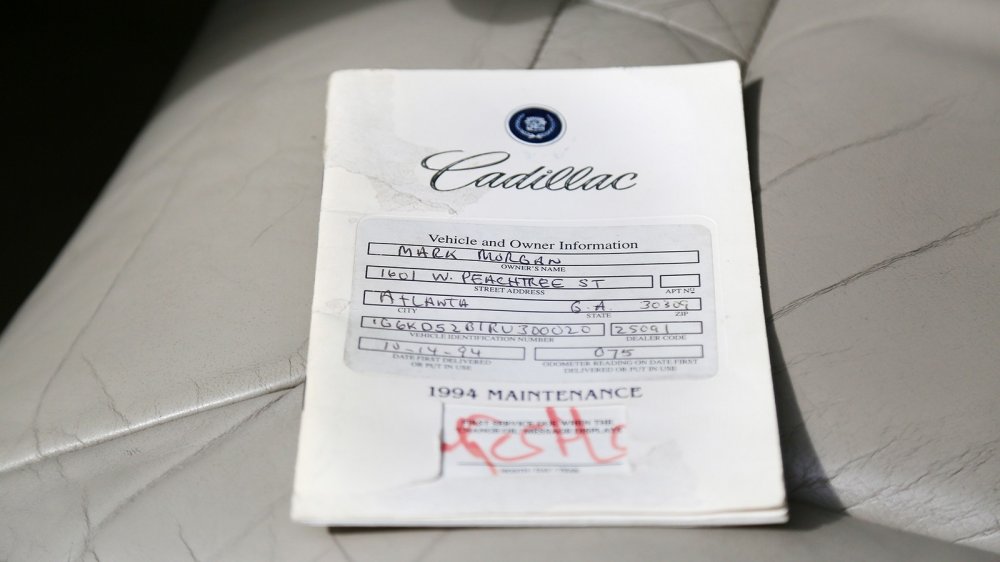 Cadillac
Vehicle and Owner Information
MARK MORGAN
OWNER'S NAME
1601 W. PEACHTREE ST
STREET ADDRESS APT Nº
AtLANTA G.A 30309
CITY STATE ZIP
1G6KD52B1RU300020 25091
VEHICLE IDENTIFICATION NUMBER DEALER CODE
10-14-94 075
DATE FIRST DELIVERED ODOMETER READING ON DATE FIRST
OR PUT IN USE DELIVERED OR PUT IN USE
1994 MAINTENANCE
FIRST SERVICE DUE WHEN THE